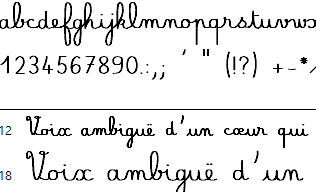 abcdefghijklmnopqrstuvwx
1234567890.:,; ' " (!?) +-*/
12 Voix ambiguë d'un cœur qui
18 Voix ambiguë d'un